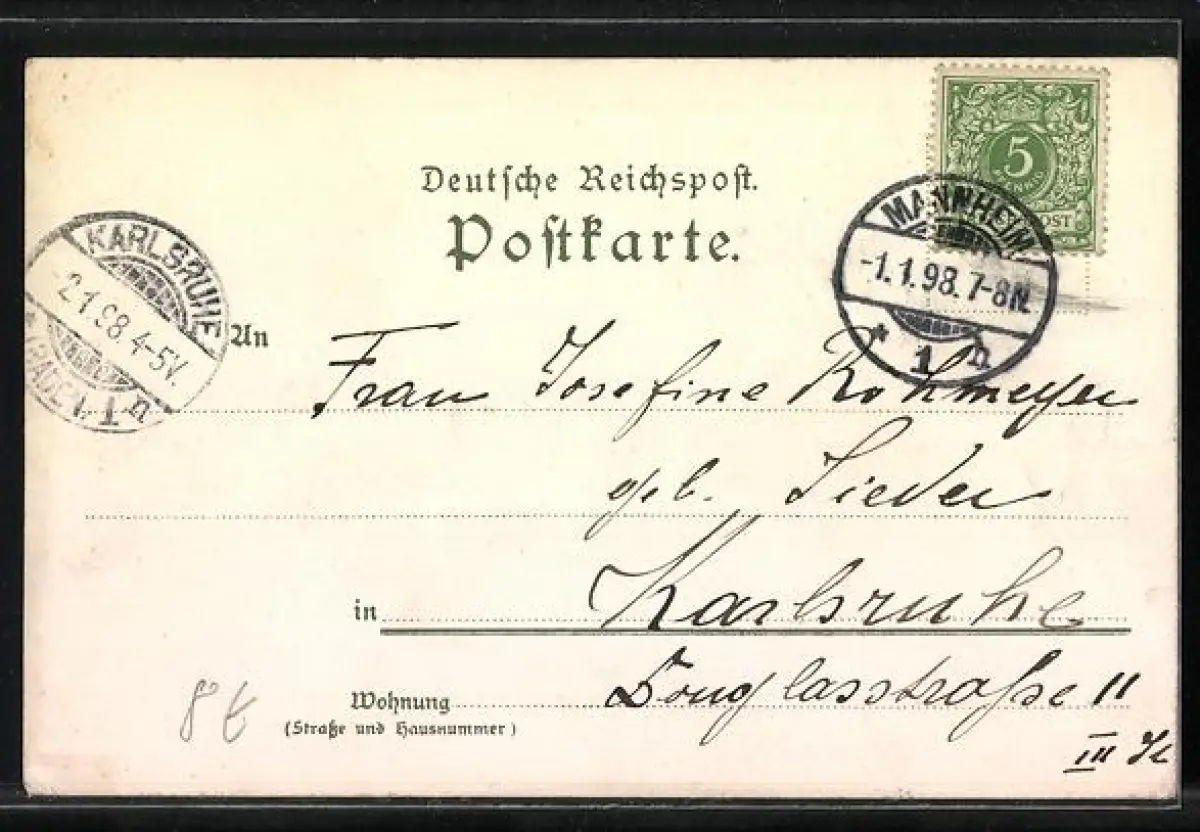 Deutsche Reichspost.
Postkarte.
5
PFENNIG
POST
MANNHEIM
-1.1.98.7-8N.
* 1 h
KARLSRUHE
-2.1.98.4-5V.
* (BADEN) 1 h
An
Frau Josefine Rohmeyer
geb. Sieder
in Karlsruhe
Wohnung Douglasstraße 11
(Straße und Hausnummer)
III